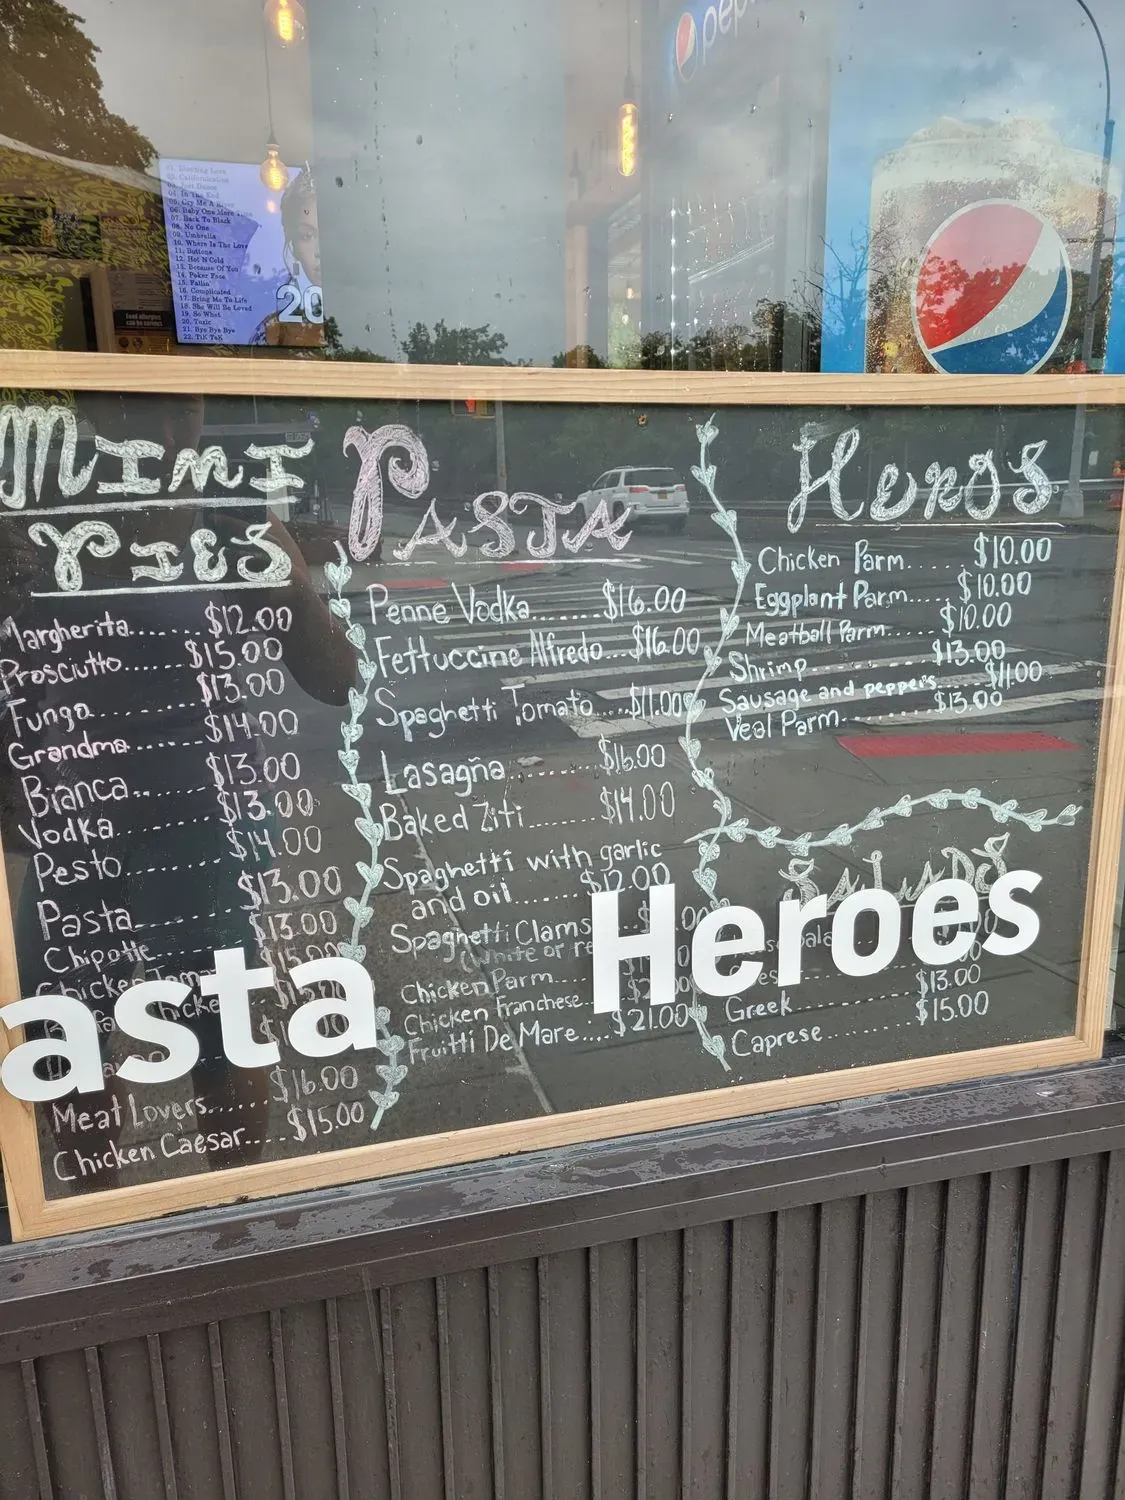 pepsi
01. Bleeding Love
02. Californication
03. Just Dance
04. In The End
05. Cry Me A River
06. Baby One More Time
07. Back To Black
08. No One
09. Umbrella
10. Where Is The Love
11. Buttons
12. Hot N Cold
13. Because Of You
14. Poker Face
15. Fallin'
16. Complicated
17. Bring Me To Life
18. She Will Be Loved
19. So What
20. Toxic
21. Bye Bye Bye
22. TiK ToK
20
Food allergies
can be serious
Mini
Pies
Margherita....... $12.00
Prosciutto...... $15.00
Fungo........... $13.00
Grandma......... $14.00
Bianca.......... $13.00
Vodka........... $13.00
Pesto........... $14.00
Pasta........... $13.00
Chipotle........ $13.00
Chicken $15.00
Meat Lovers...... $16.00
Chicken Caesar.... $15.00
Pasta
Penne Vodka...... $16.00
Fettuccine Alfredo... $16.00
Spaghetti Tomato.... $11.00
Lasagña......... $16.00
Baked Ziti....... $14.00
Spaghetti with garlic
and oil....... $12.00
Spaghetti Clams
(white or
Chicken Parm
Chicken Franchese...
Fruitti De Mare.... $21.00
Heros
Chicken Parm..... $10.00
Eggplant Parm..... $10.00
Meatball Parm..... $10.00
Shrimp.......... $13.00
Sausage and peppers.... $11.00
Veal Parm....... $13.00
Salads
$13.00
Greek........... $15.00
Caprese.........
asta
Heroes